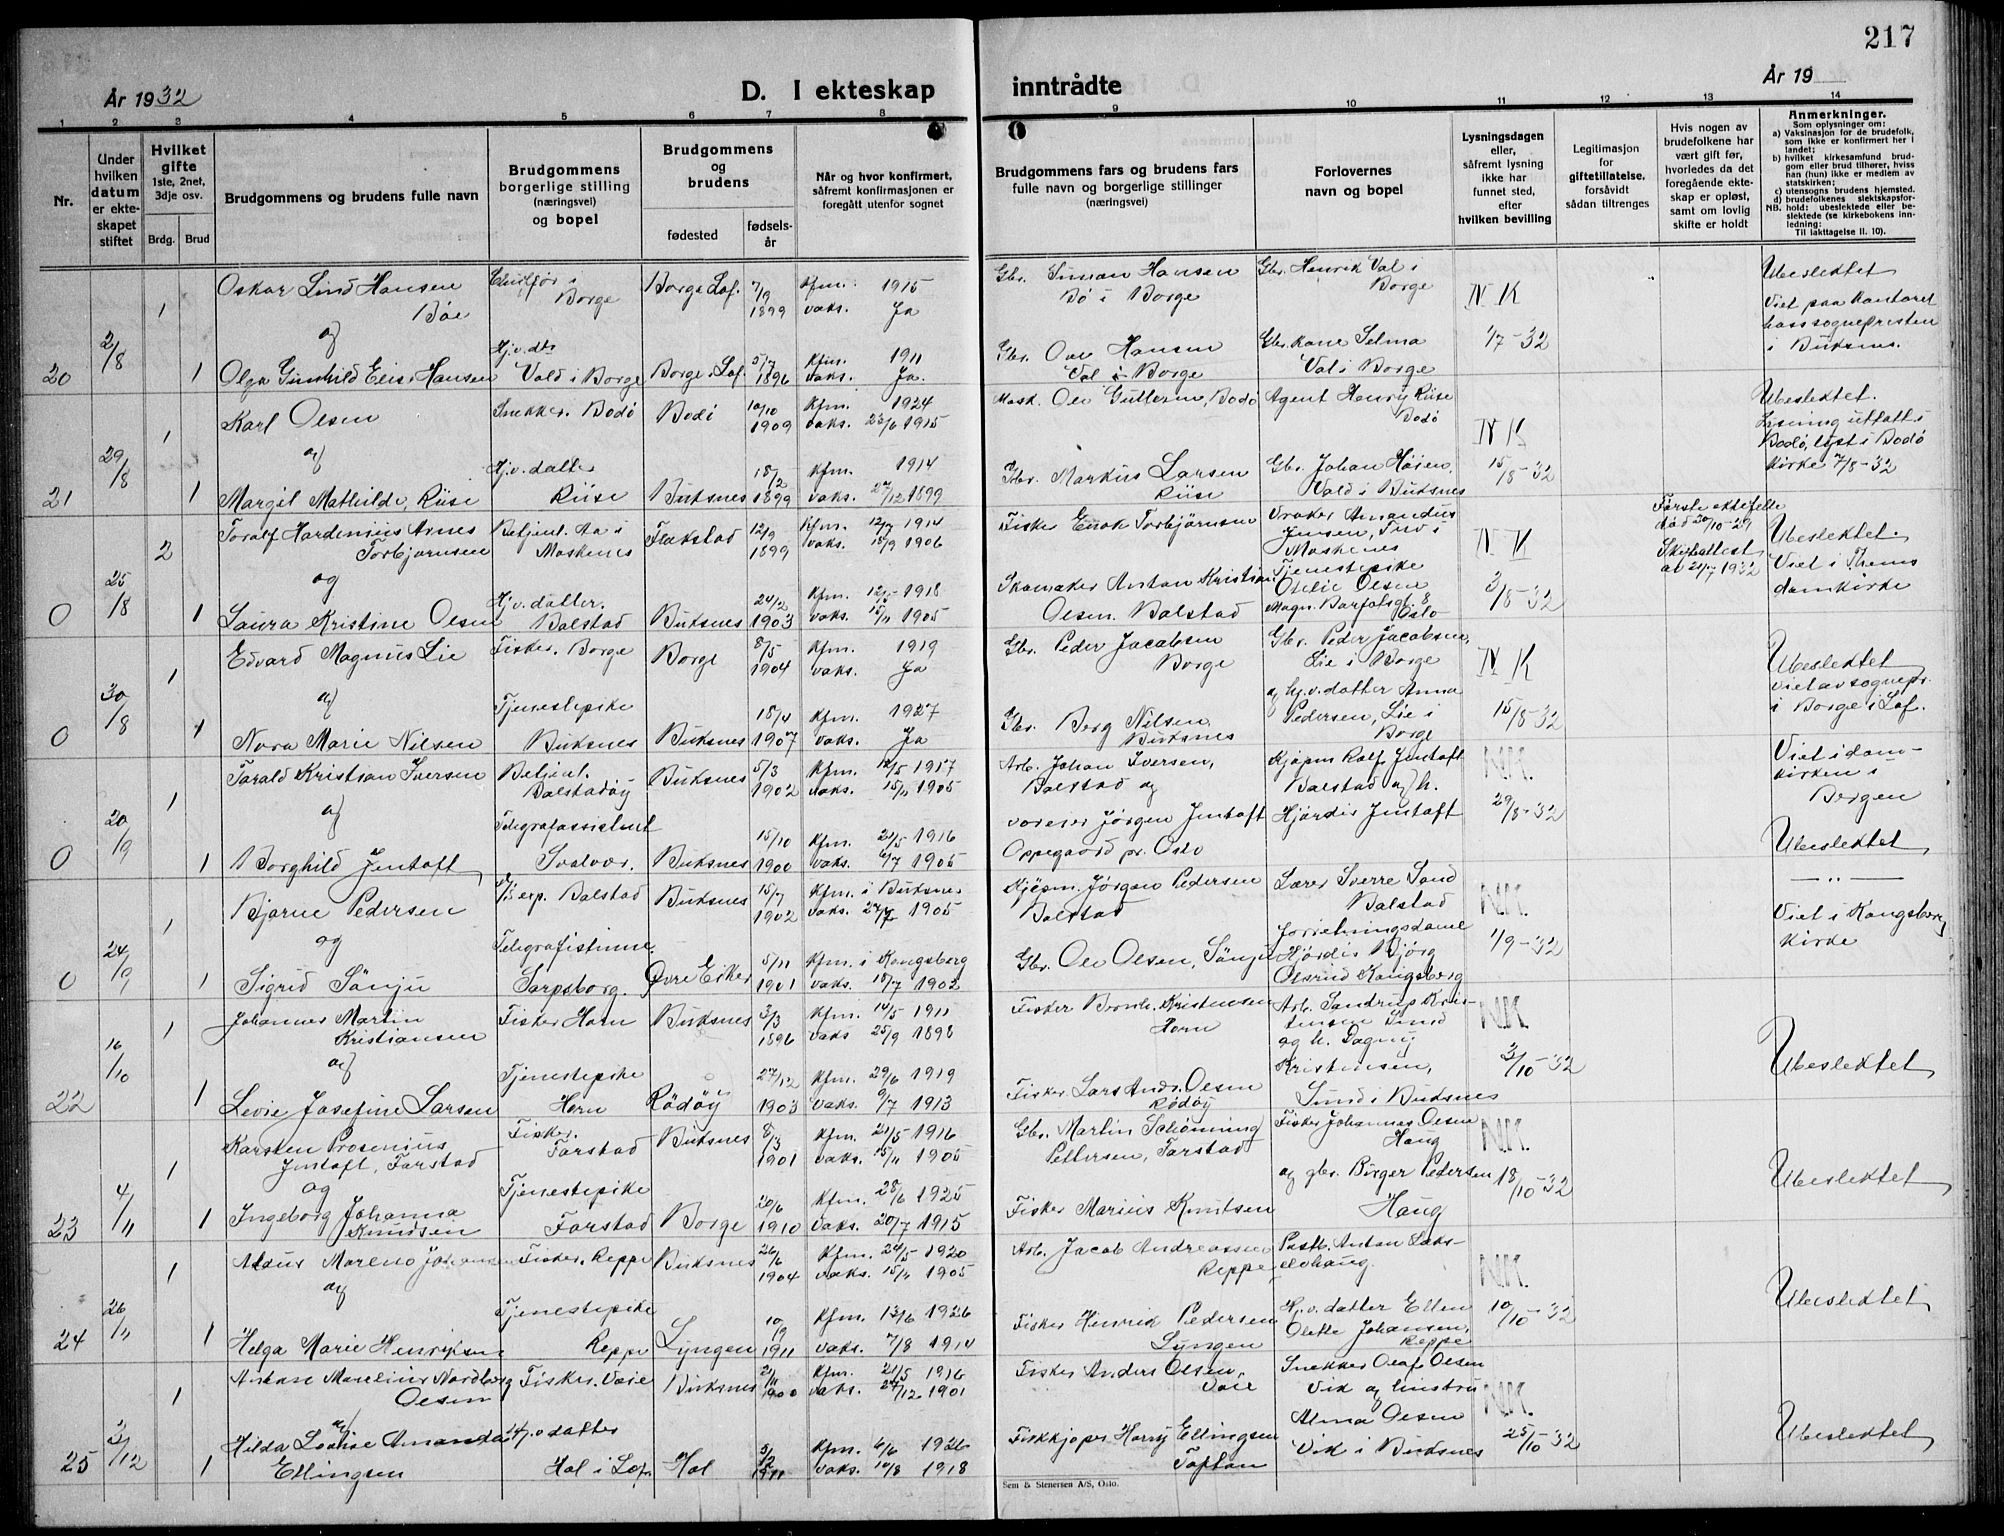 217
År 1932
D. I ekteskap
inntrådte
År 19
1 2 3 4 5 6 7 8 9 10 11 12 13 14
Nr.
Under hvilken datum er ekteskapet stiftet
Hvilket gifte 1ste, 2net, 3dje osv.
Brdg. Brud
Brudgommens og brudens fulle navn
Brudgommens borgerlige stilling (næringsvei) og bopel
Brudgommens og brudens
fødested
fødselsår
Når og hvor konfirmert, såfremt konfirmasjonen er foregått utenfor sognet
Brudgommens fars og brudens fars fulle navn og borgerlige stillinger (næringsvei)
Forlovernes navn og bopel
Lysningsdagen eller, såfremt lysning ikke har funnet sted, efter hvilken bevilling
Legitimasjon for giftetillatelse, forsåvidt sådan tiltrenges
Hvis nogen av brudefolkene har vært gift før, hvorledes da det foregående ekteskap er opløst, samt om lovlig skifte er holdt
Anmerkninger.
Som oplysninger om:
a) Vaksinasjon for de brudefolk, som ikke er konfirmert her i landet;
b) hvilket kirkesamfund brudgom eller brud tilhører, hviss han (hun) ikke er medlem av statskirken;
c) utensogns brudens hjemsted.
d) brudefolkenes slektskapsforhold: ubeslektede eller beslektede (se kirkebokens innledning:
NB.
Til iakttagelse II. 10).
20 2/8 1 Oskar Lind Hansen Böe Borge Borge Lof. 7/9 1899 Kfm. 1915 vaks. Ja Gbr. Simon Hansen Bö i Borge Gbr. Henrik Val i Borge N K Ubeslektet Viet paa kontoret hos sognepresten i Buksnes.
og
1 Olga Gunhild Elise Hansen Hj.v. dtr Vald i Borge Borge i Lof. 5/7 1896 Kfm. 1911 vaks. Ja. Gbr. Ove Hansen Val i Borge Gbr. kone Selma Val i Borge 1/7-32
21 29/8 1 Karl Olsen Snekker. Bodö Bodö 10/10 1909 Kfm. 1924 vaks. 23/6 1915 Mask. Ole Guttorm, Bodö Agent Henry Riise Bodö N K Ubeslektet. Lysning uttatt i Bodö, lyst i Bodö kirke 7/8-32
og
1 Margit Mathilde Riise Hj.v. datter Riise Buksnes 18/2 1899 Kfm. 1914 vaks. 27/12 1899 Gbr. Markus Larsen Riise Gbr. Johan Höien, Vald i Buksnes 15/8-32
0 25/8 2 Toralf Hardenius Arnes Torbjørnsen Betjent. Aa i Moskenes Flakstad 12/9 1899 Kfm. 12/7 1914 vaks. 18/9 1906 Fisker Enok Torbjörnsen Vraker Amandus Jensen, Tind i Moskenes N K Förste ektefelle död 20/10-29 Skifteattest av 21/7 1932 Ubeslektet. Viet i Tr.hems domkirke
og
1 Laura Kristine Olsen Hj.v. datter. Balstad Buksnes 24/12 1903 Kfm. 12/5 1918 vaks. 15/11 1905 Skomaker Anton Kristian Olsen. Balstad Tjenestepike Otelie Olsen Magn. Barfotsgt. 8 Oslo 3/8-32
0 30/8 1 Edvard Magnus Lie Fisker. Borge Borge 8/5 1904 Kfm. 1919 vaks. Ja Gbr. Peder Jacobsen Borge Gbr. Peder Jacobsen, Lie i Borge N K Ubeslektet viet av sognepr. i Borge i Lof.
og
1 Nora Marie Nilsen Tjenestepike Buksnes Buksnes 18/4 1907 Kfm. 1927 vaks. Ja Gbr. Berg Nilsen Buksnes og hj.v. datter Anna Pedersen, Lie i Borge 15/8-32
0 20/9 1 Torald Kristian Iversen Betjent. Balstadöy Buksnes 5/3 1902 Kfm. 1917 vaks. 15/11 1905 Arb. Johan Iversen, Balstad og Kjöpm Rolf Jentoft Balstad og h. N.K. Viet i domkirken i Bergen
og
1 Borghild Jentoft Telegrafassistent Svolvær. Buksnes 15/10 1900 Kfm. 21/5 1916 vaks. 6/7 1905 Jörgen Jentoft Oppegaard pr. Oslo Hjördis Jentoft 29/8-32 Ubeslektet
0 24/9 1 Bjarne Pedersen Balstad Buksnes 15/7 1902 Kfm. i Buksnes vaks. 1905 Kjöpm. Jörgen Pedersen Balstad Lærer Sverre Sand Balstad N.K. —„— Viet i Kongsberg kirke
og
1 Sigrid Sönju Telegrafistinne. Sarpsborg. Övre Eiker 5/11 1901 Kfm. i Kongsberg vaks. 18/7 1902 Gbr. Ole Olsen, Sönju forretningsdame Hjördis Bjórg Kongsberg 1/9-32
22 16/10 1 Johannes Martin Kristiansen Fisker Horn Buksnes 3/3 1896 Kfm. 14/5 1911 vaks 25/9 1898 Fisker Kristensen Horn Arb. Sandrup Kristensen Sund og h. Dagny N.K. Ubeslektet
og
1 Levie Josefine Larsen Tjenestepike Horn Rödöy 27/12 1903 Kfm. 29/6 1919 vaks. 9/7 1913 Fisker Lars Andr. Olsen Rödöy Kristensen, Sund i Buksnes 3/10-32
23 4/11 1 Karsten Prosenius Jentoft, Farstad Fisker. Farstad Buksnes 8/3 1901 Kfm. 21/5 1916 vaks. 15/11 1905 Gbr. Martin Schönning Pettersen, Farstad Fisker Johannes Olsen Haug N.K. Ubeslektet
og
1 Ingeborg Johanna Knudsen Tjenestepike Farstad Borge 20/6 1910 Kfm. 28/6 1925 vaks. 20/7 1915 Fisker Marius Knutsen og gbr. Birger Pedersen Haug 18/10-32
24 26/11 1 Aldur Mareno Johansen Fisker. Reppe Buksnes 26/6 1904 Kfm. 24/5 1920 vaks. 15/11 1905 Arb. Jacob Andreassen Reppe Postb. Anton Lakselvhaug. N.K. Ubeslektet
og
1 Helga Marie Henriksen Tjenestepike Reppe Lyngen 10/9 1911 Kfm. 13/6 1926 vaks. 7/8 1914 Fisker Henrik Pedersen Lyngen Hj.v. datter Ellen Olette Johansen, Reppe 10/10-32
25 3/12 1 Marelius Nordberg Olsen Fisker. Voie Buksnes 21/11 1900 Kfm. 21/5 1916 vaks. 27/12 1901 Fisker Anders Olsen, Voie Snekker Olaf Olsen Vik og hustru N.K. Ubeslektet
og
1 Hilda Lovise Amanda Ellingsen Hj.v datter Hol i Lof. Hol 5/2 1911 Kfm. 6/6 1926 vaks. 10/8 1918 Fiskkjöper Harry Ellingsen Toftan Alma Olsen Vik i Buksnes 25/10-32
Sem & Stenersen A/S, Oslo.